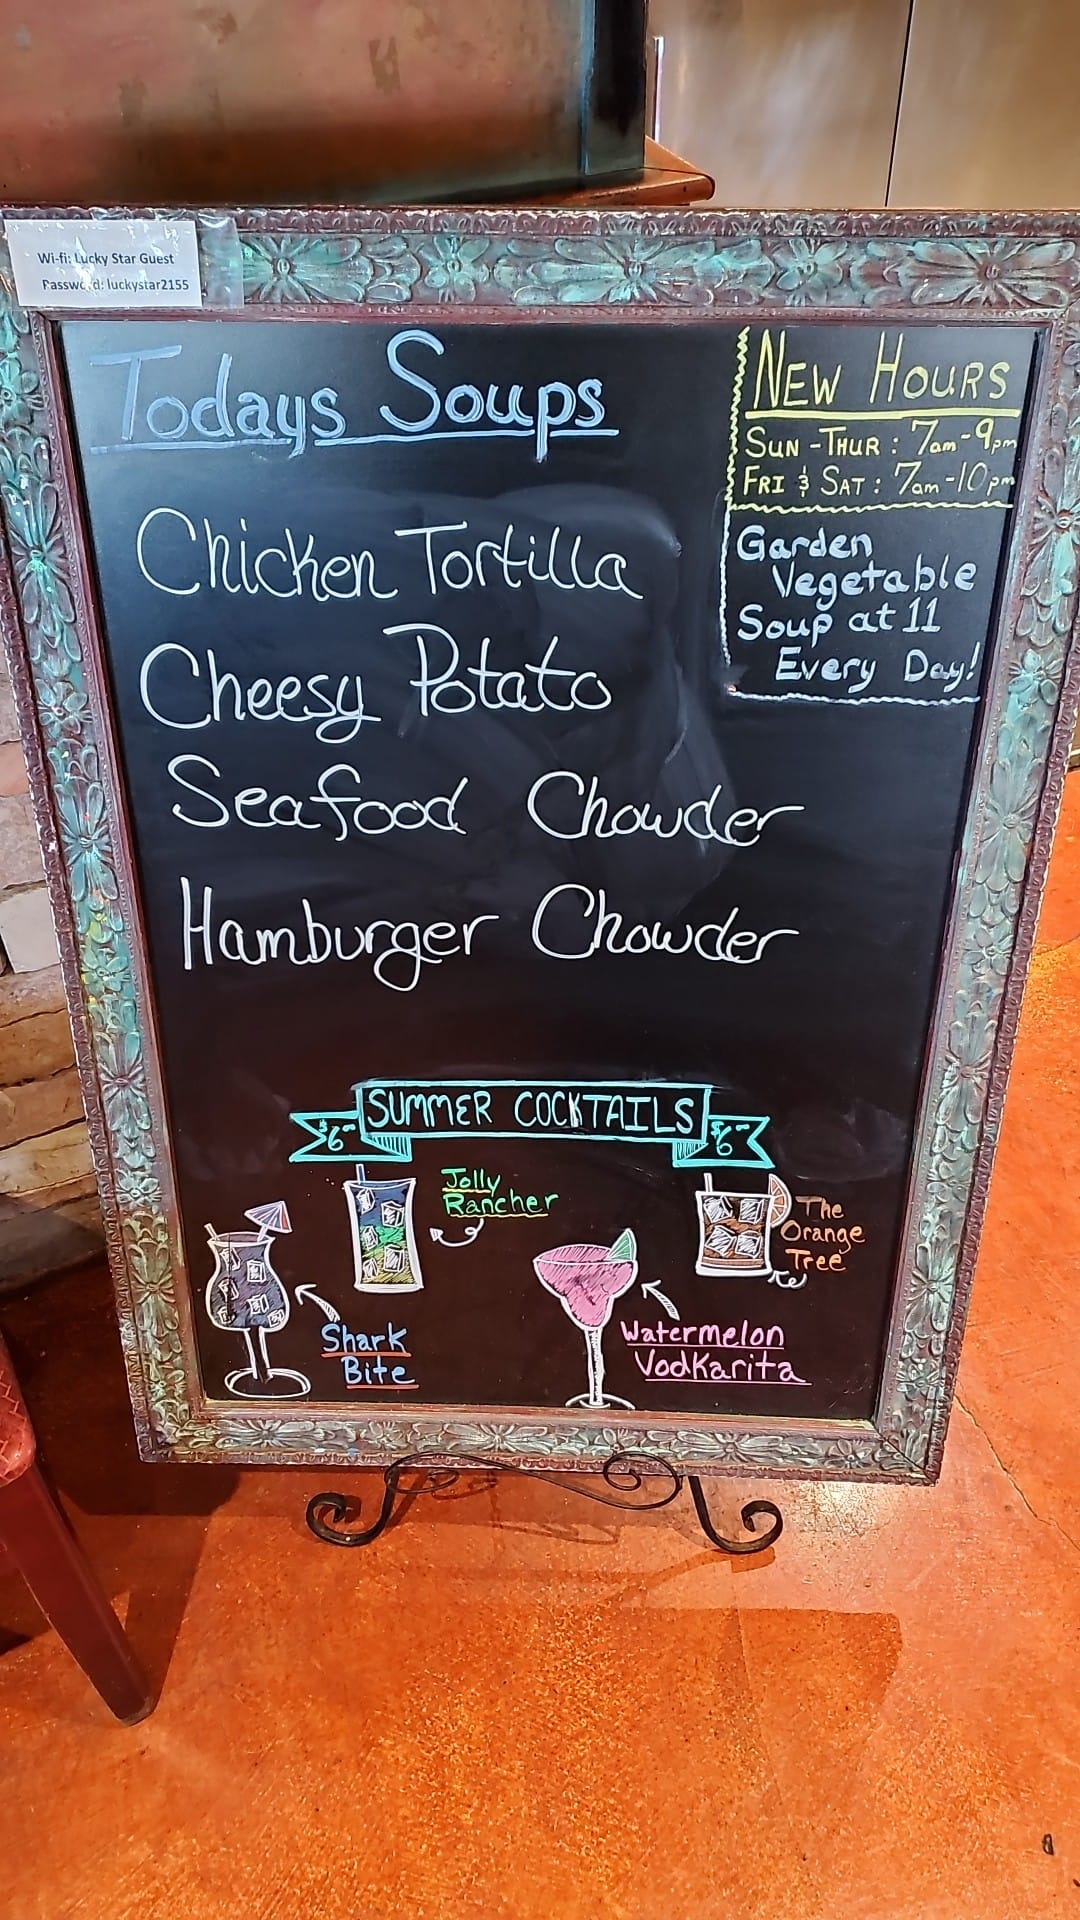 Wi-fi: Lucky Star Guest
Password: luckystar2155
Todays Soups
Chicken Tortilla
Cheesy Potato
Seafood Chowder
Hamburger Chowder
NEW HOURS
SUN - THUR : 7am - 9pm
FRI & SAT : 7am - 10pm
Garden
Vegetable
Soup at 11
Every Day!
$6 SUMMER COCKTAILS $6
Jolly
Rancher
The
Orange
Tree
Shark
Bite
Watermelon
Vodkarita